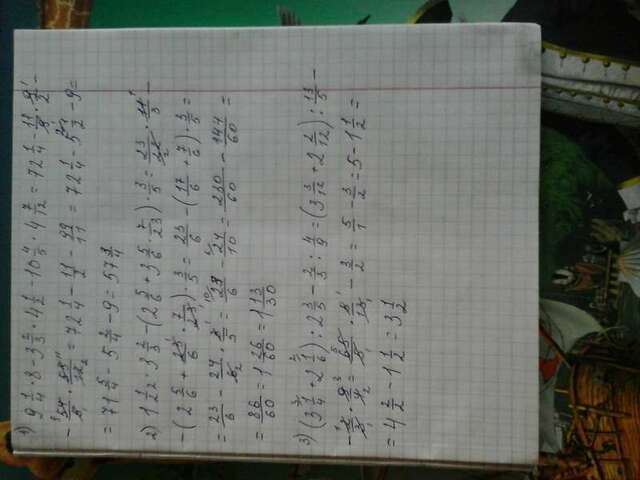 1) 9 1/4 · 8 - 3 2/3 · 4 1/2 - 10 4/5 · 4 7/12 = 72 1/4 - 11/3 · 9/2 -
= 72 1/4 - 11/2 - 99/11 = 72 1/4 - 5 1/2 - 9 =
= 71 5/4 - 5 2/4 - 9 = 57 3/4
2) 1 1/2 · 3 - (2 5/6 + 3 5/6 · 7/23) · 3/5 = 23/ -
- (2 5/6 + 23/6 · 7/23) · 3/5 = 23/6 - (17/6 + 7/6) · 3/5 =
= 23/6 - 24/6 · 3/5 = 23/6 - 24/10 = 230/60 - 144/60 =
= 86/60 = 1 26/60 = 1 13/30
3) (3 1/4 + 2 1/6) : 2 3/5 - 2/3 : 4/9 = (3 3/12 + 2 2/12) : 13/5 -
- 2/3 · 9/4 = 65/ · 5/13 - 3/2 = 5/1 - 3/2 = 5 - 1 1/2 =
= 4 2/2 - 1 1/2 = 3 1/2